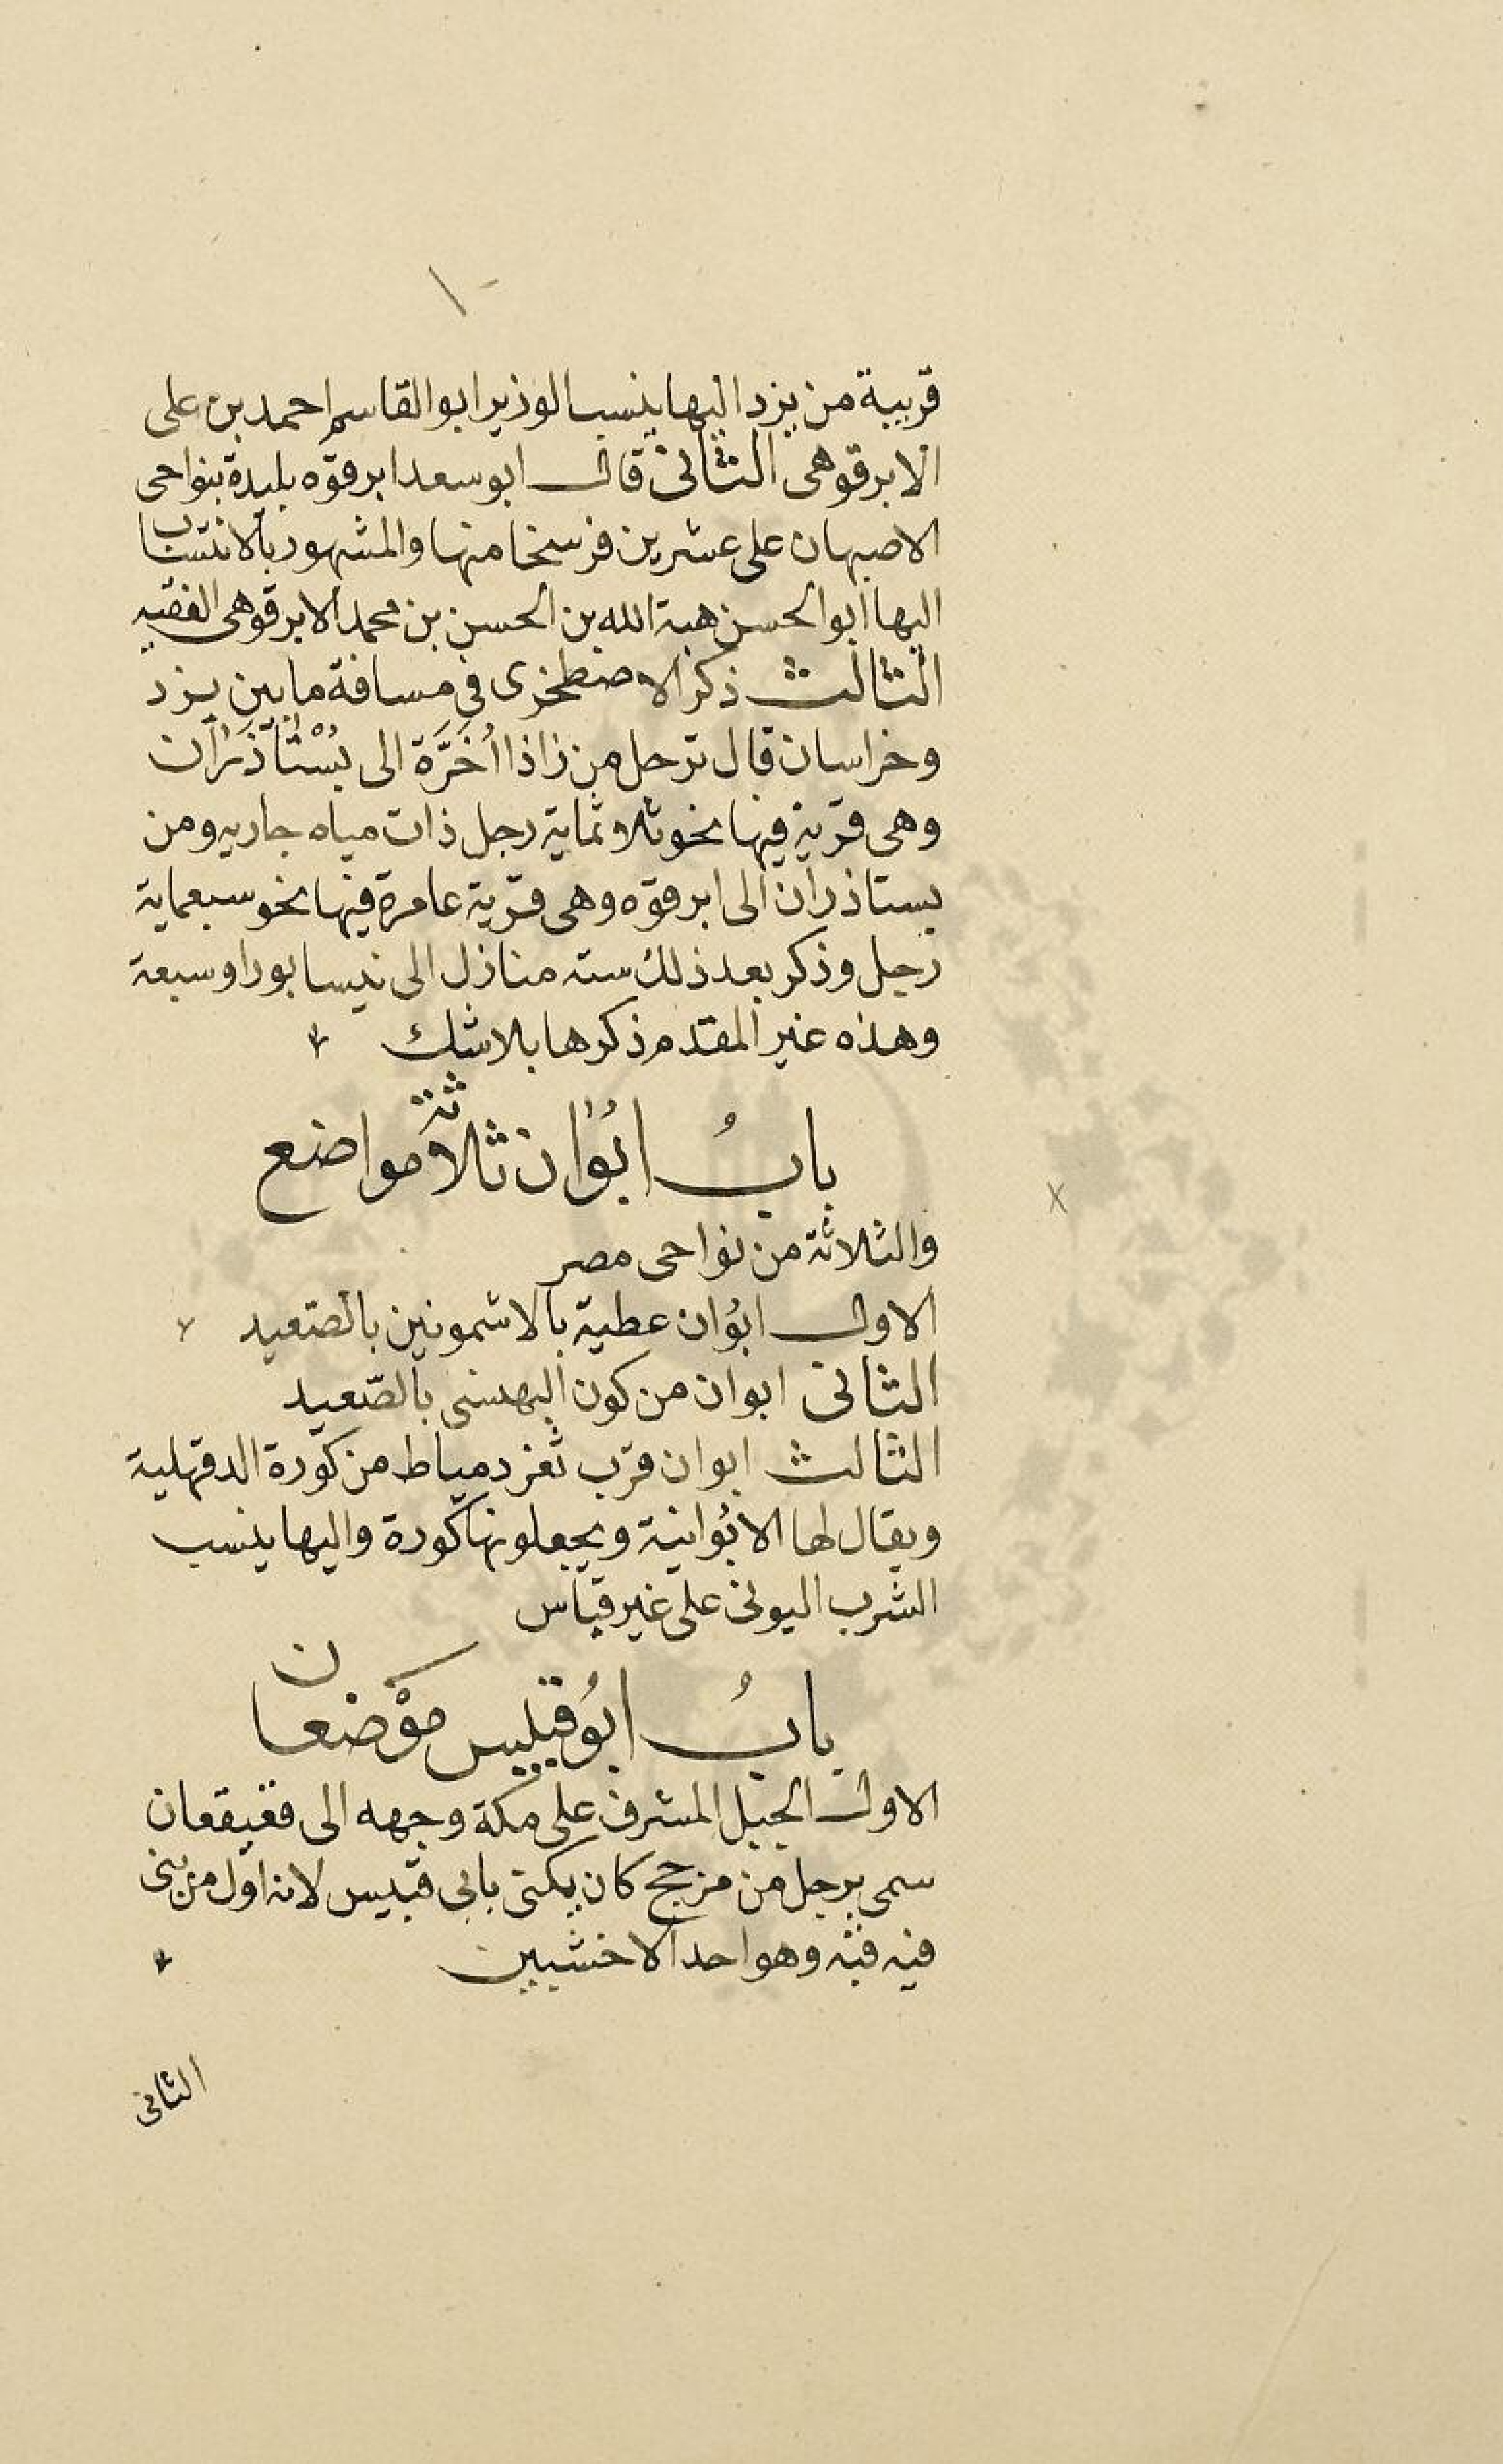 قريبة من يزد اليها ينسب الوزير ابو القاسم احمد بن على
الابرقوهى الثانى قال ابو سعد ابرقوه بليدة بنواحى
الاصبهان على عشرين فرسخا منها والمشهور بالانتساب
اليها ابو الحسن هبة الله بن الحسن بن محمد الابرقوهى الفقيه
الثالث ذكر الاصطخرى فى مسافة ما بين يزد
وخراسان قال ترحل من زاذاآخرة الى بُسْتَاذَرَان
وهى قرية فيها نحو ثلاثماية رجل ذات مياه جاريه ومن
بستاذران الى ابرقوه وهى قرية عامرة فيها نحو سبعماية
رجل وذكر بعد ذلك سته منازل الى نيسابور او سبعة
وهذه غير المقدم ذكرها بلا شك
بابُ ابُوان ثلاثة مواضع
والثلاثة من نواحى مصر
الاول ابُوان عطية بالاشمونين بالصّعيد
الثانى ابوان من كون البهنسى بالصّعيد
الثالث ابوان قرب ثغر دمياط من كورة الدقهلية
ويقال لها الابُوانية ويجعلونها كورة واليها ينسب
الشرب البونى على غير قياس
بابُ ابُو قبيس موْضعان
الاول الجبل المشرف على مكة وجهه الى قعيقعان
سمى برجل من مزحج كان يكنى بابى قبيس لانه اول من بنى
فيه قبه وهو احد الاخشبين
الثانى